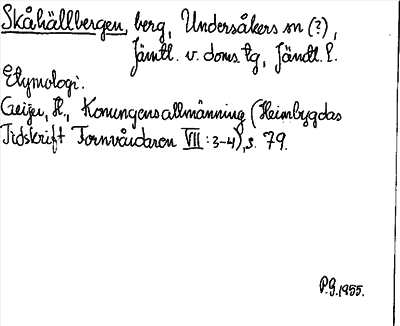 Skåhällbergen, berg, Undersåkers sn (?),
Jämtl. v. doms tg, Jämtl. l.
Etymologi.
Geijer, H., Konungens allmänning (Heimbygdas
Tidskrift Fornvårdaren VII: 3-4), s. 79.
P.G. 1955.